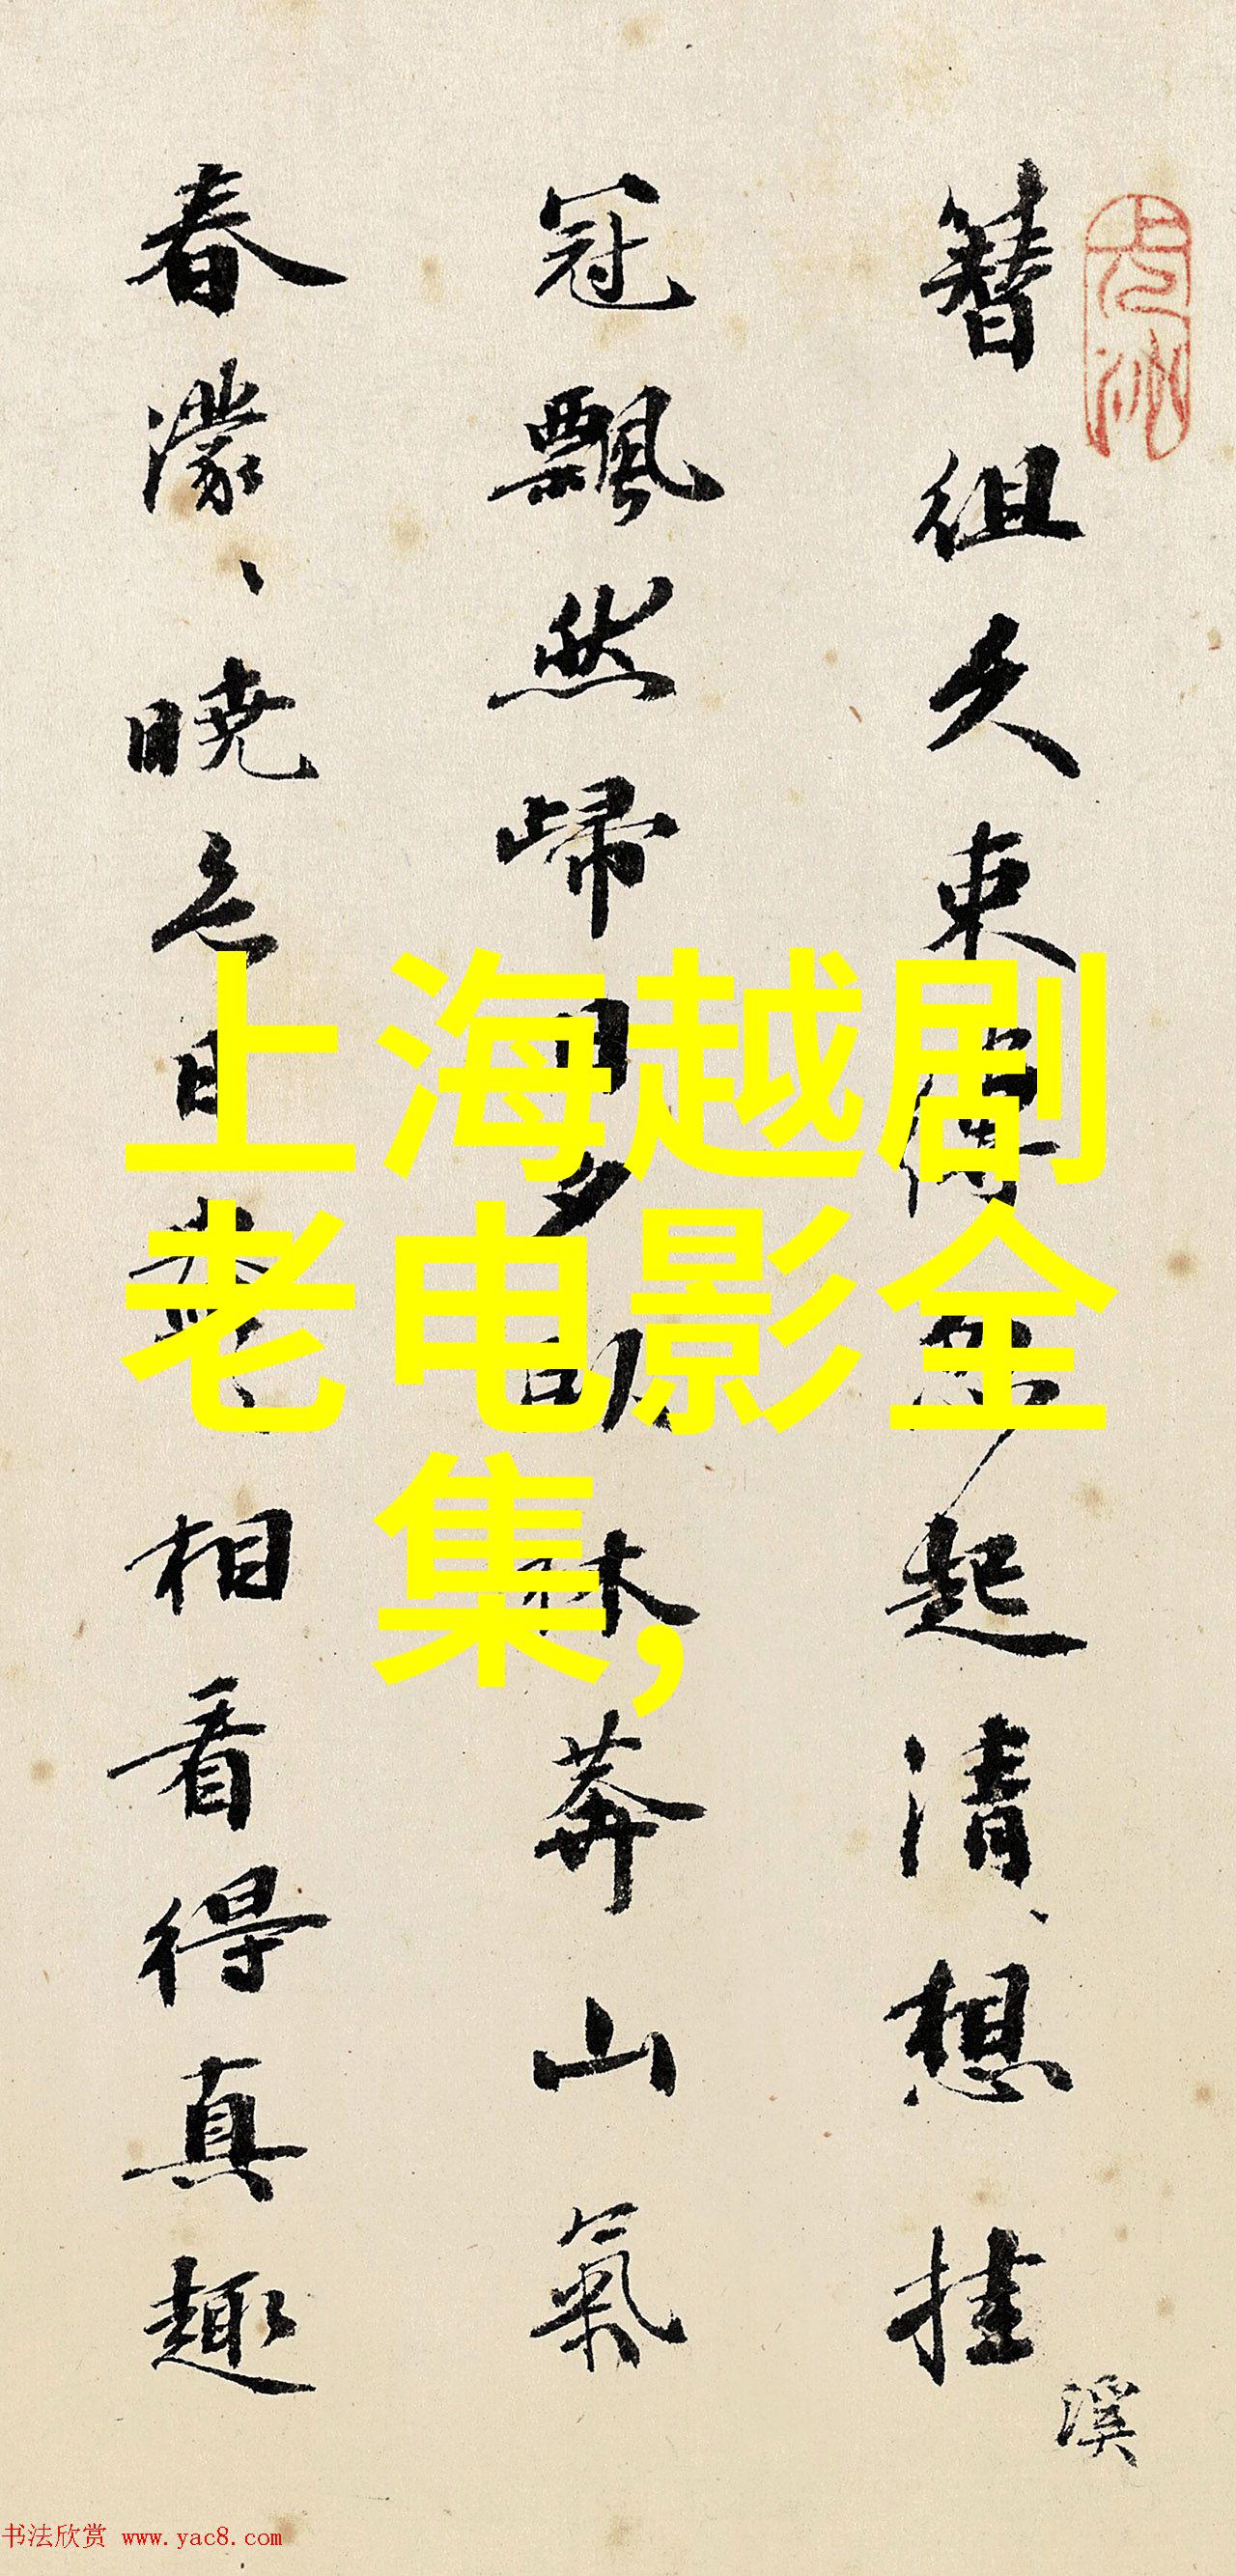 簪组久束缚忽起清、想挂
冠飘然归日夕∅林莽山氣
春濛、晓色日∅、相看得真趣
溪
上海越剧
老电影全
集,
书法欣赏 www.yac8.com